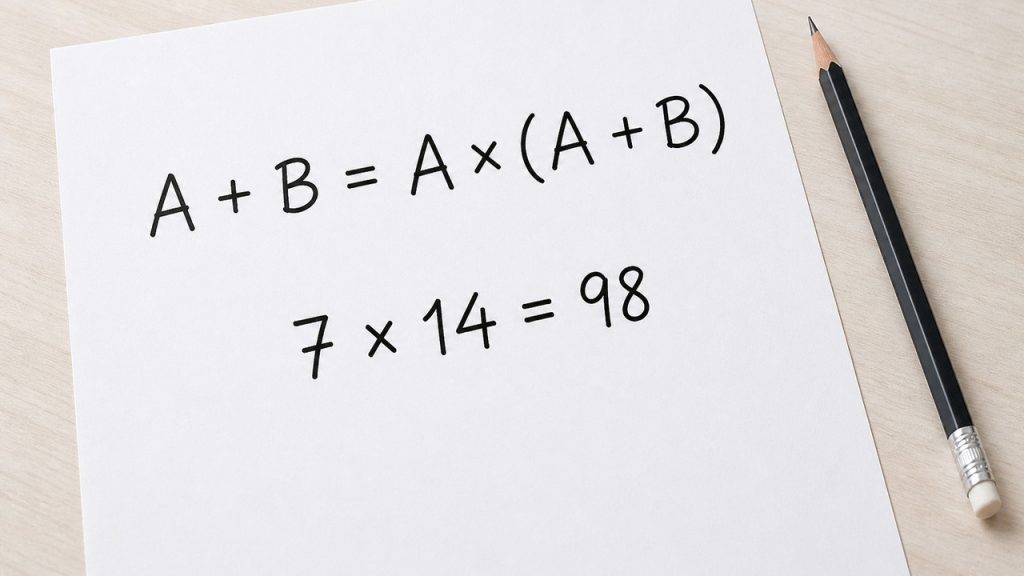 A + B = A × (A + B)
7 × 14 = 98